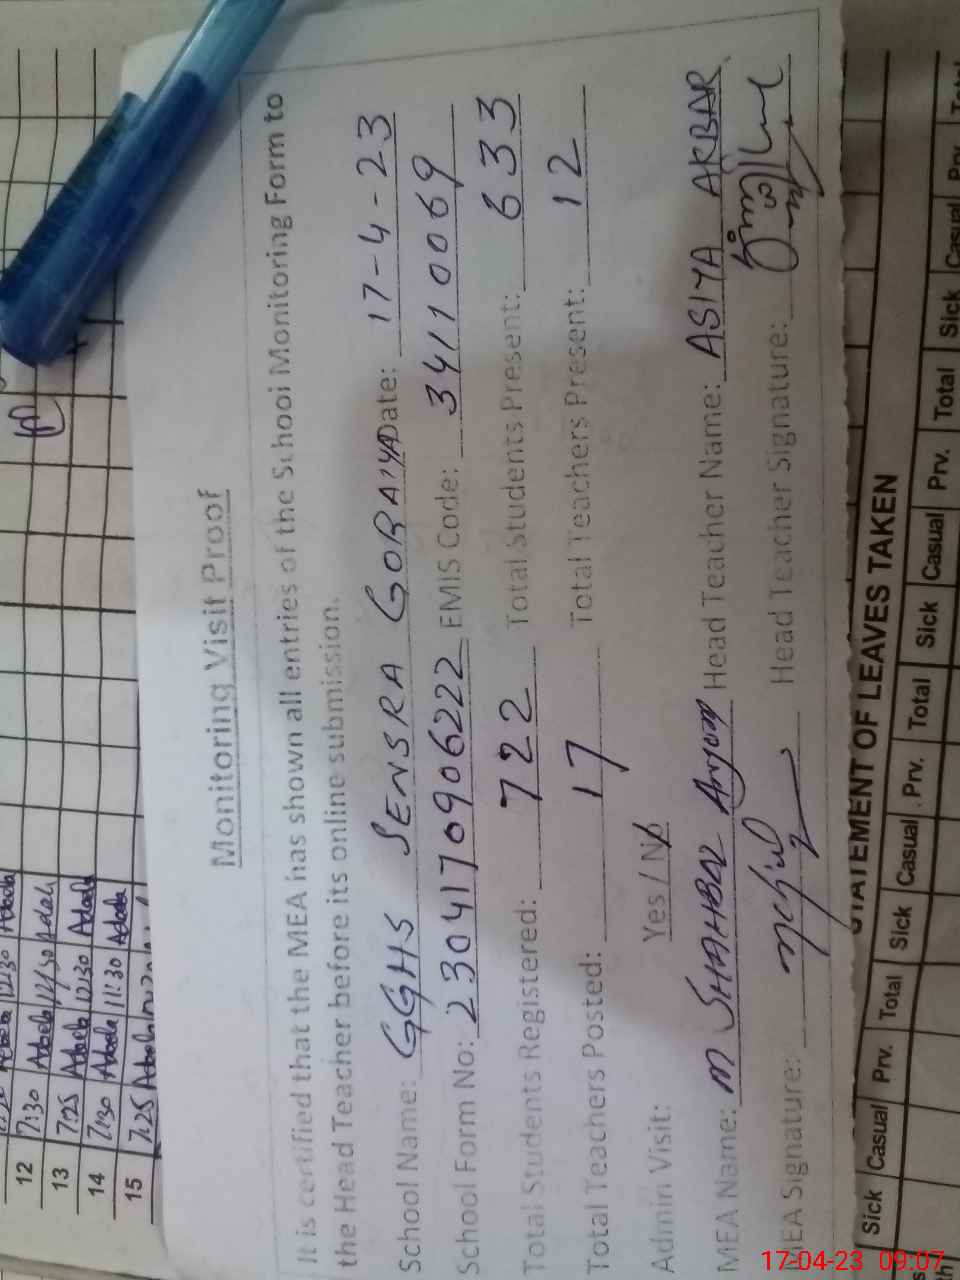 Monitoring Visit Proof
It is certified that the MEA has shown all entries of the School Monitoring Form to
the Head Teacher before its online submission.
School Name: GGHS SENSRA GORAIYA Date: 17-4-23
School Form No: 2304170906222 EMIS Code: 34110069
Total Students Registered: 722 Total Students Present: 633
Total Teachers Posted: 17 Total Teachers Present: 12
Admin Visit: Yes / No
MEA Name: M SHAHBAZ Anjom Head Teacher Name: ASIYA AKBAR
MEA Signature: Head Teacher Signature:
STATEMENT OF LEAVES TAKEN
Sick Casual Prv. Total Sick Casual Prv. Total Sick Casual Prv. Total Sick Casual Prv. Total
12 7:30 Adeela 12:30 Adeela
13 7:25 Adeela 12:30 Adeela
14 7:30 Adeela 11:30 Adeela
15 7:25 Adeela
17-04-23 09:07